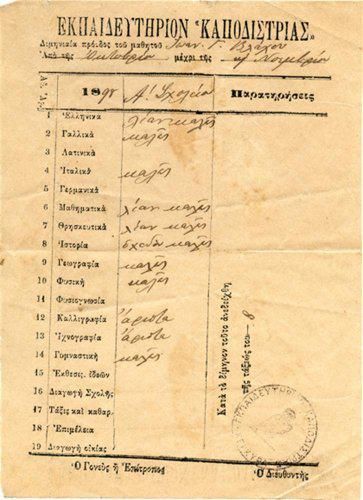 ΕΚΠΑΙΔΕΥΤΗΡΙΟΝ "ΚΑΠΟΔΙΣΤΡΙΑΣ"
Διμηνιαία πρόοδος τοῦ μαθητοῦ Ἰωάν. Γ. Βλάχου
Ἀπὸ τῆς Ὀκτωβρίου μέχρι τῆς Νοεμβρίου
Αὔξ. Ἀρ. 1898 Α! Σχολεῖον Παρατηρήσεις
1 Ἑλληνικὰ λίαν καλῶς
2 Γαλλικὰ καλῶς
3 Λατινικὰ
4 Ἰταλικὰ καλῶς
5 Γερμανικὰ
6 Μαθηματικὰ λίαν καλῶς
7 Θρησκευτικὰ λίαν καλῶς
8 Ἱστορία σχεδὸν καλῶς
9 Γεωγραφία καλῶς
10 Φυσικὴ καλῶς
11 Φυσιογνωσία
12 Καλλιγραφία ἄριστα
13 Ἰχνογραφία ἄριστα
14 Γυμναστικὴ καλῶς
15 Ἐκθεσις ἰδεῶν
16 Διαγωγὴ Σχολῆς
17 Τάξις καὶ καθαρ.
18 Ἐπιμέλεια
19 Διαγωγὴ οἰκίας
Κατὰ τὸ δίμηνον τοῦτο ἀνεδείχθη
τῆς τάξεώς του 8
Ὁ Γονεὺς ἢ Ἐπίτροπος Ὁ Διευθυντὴς